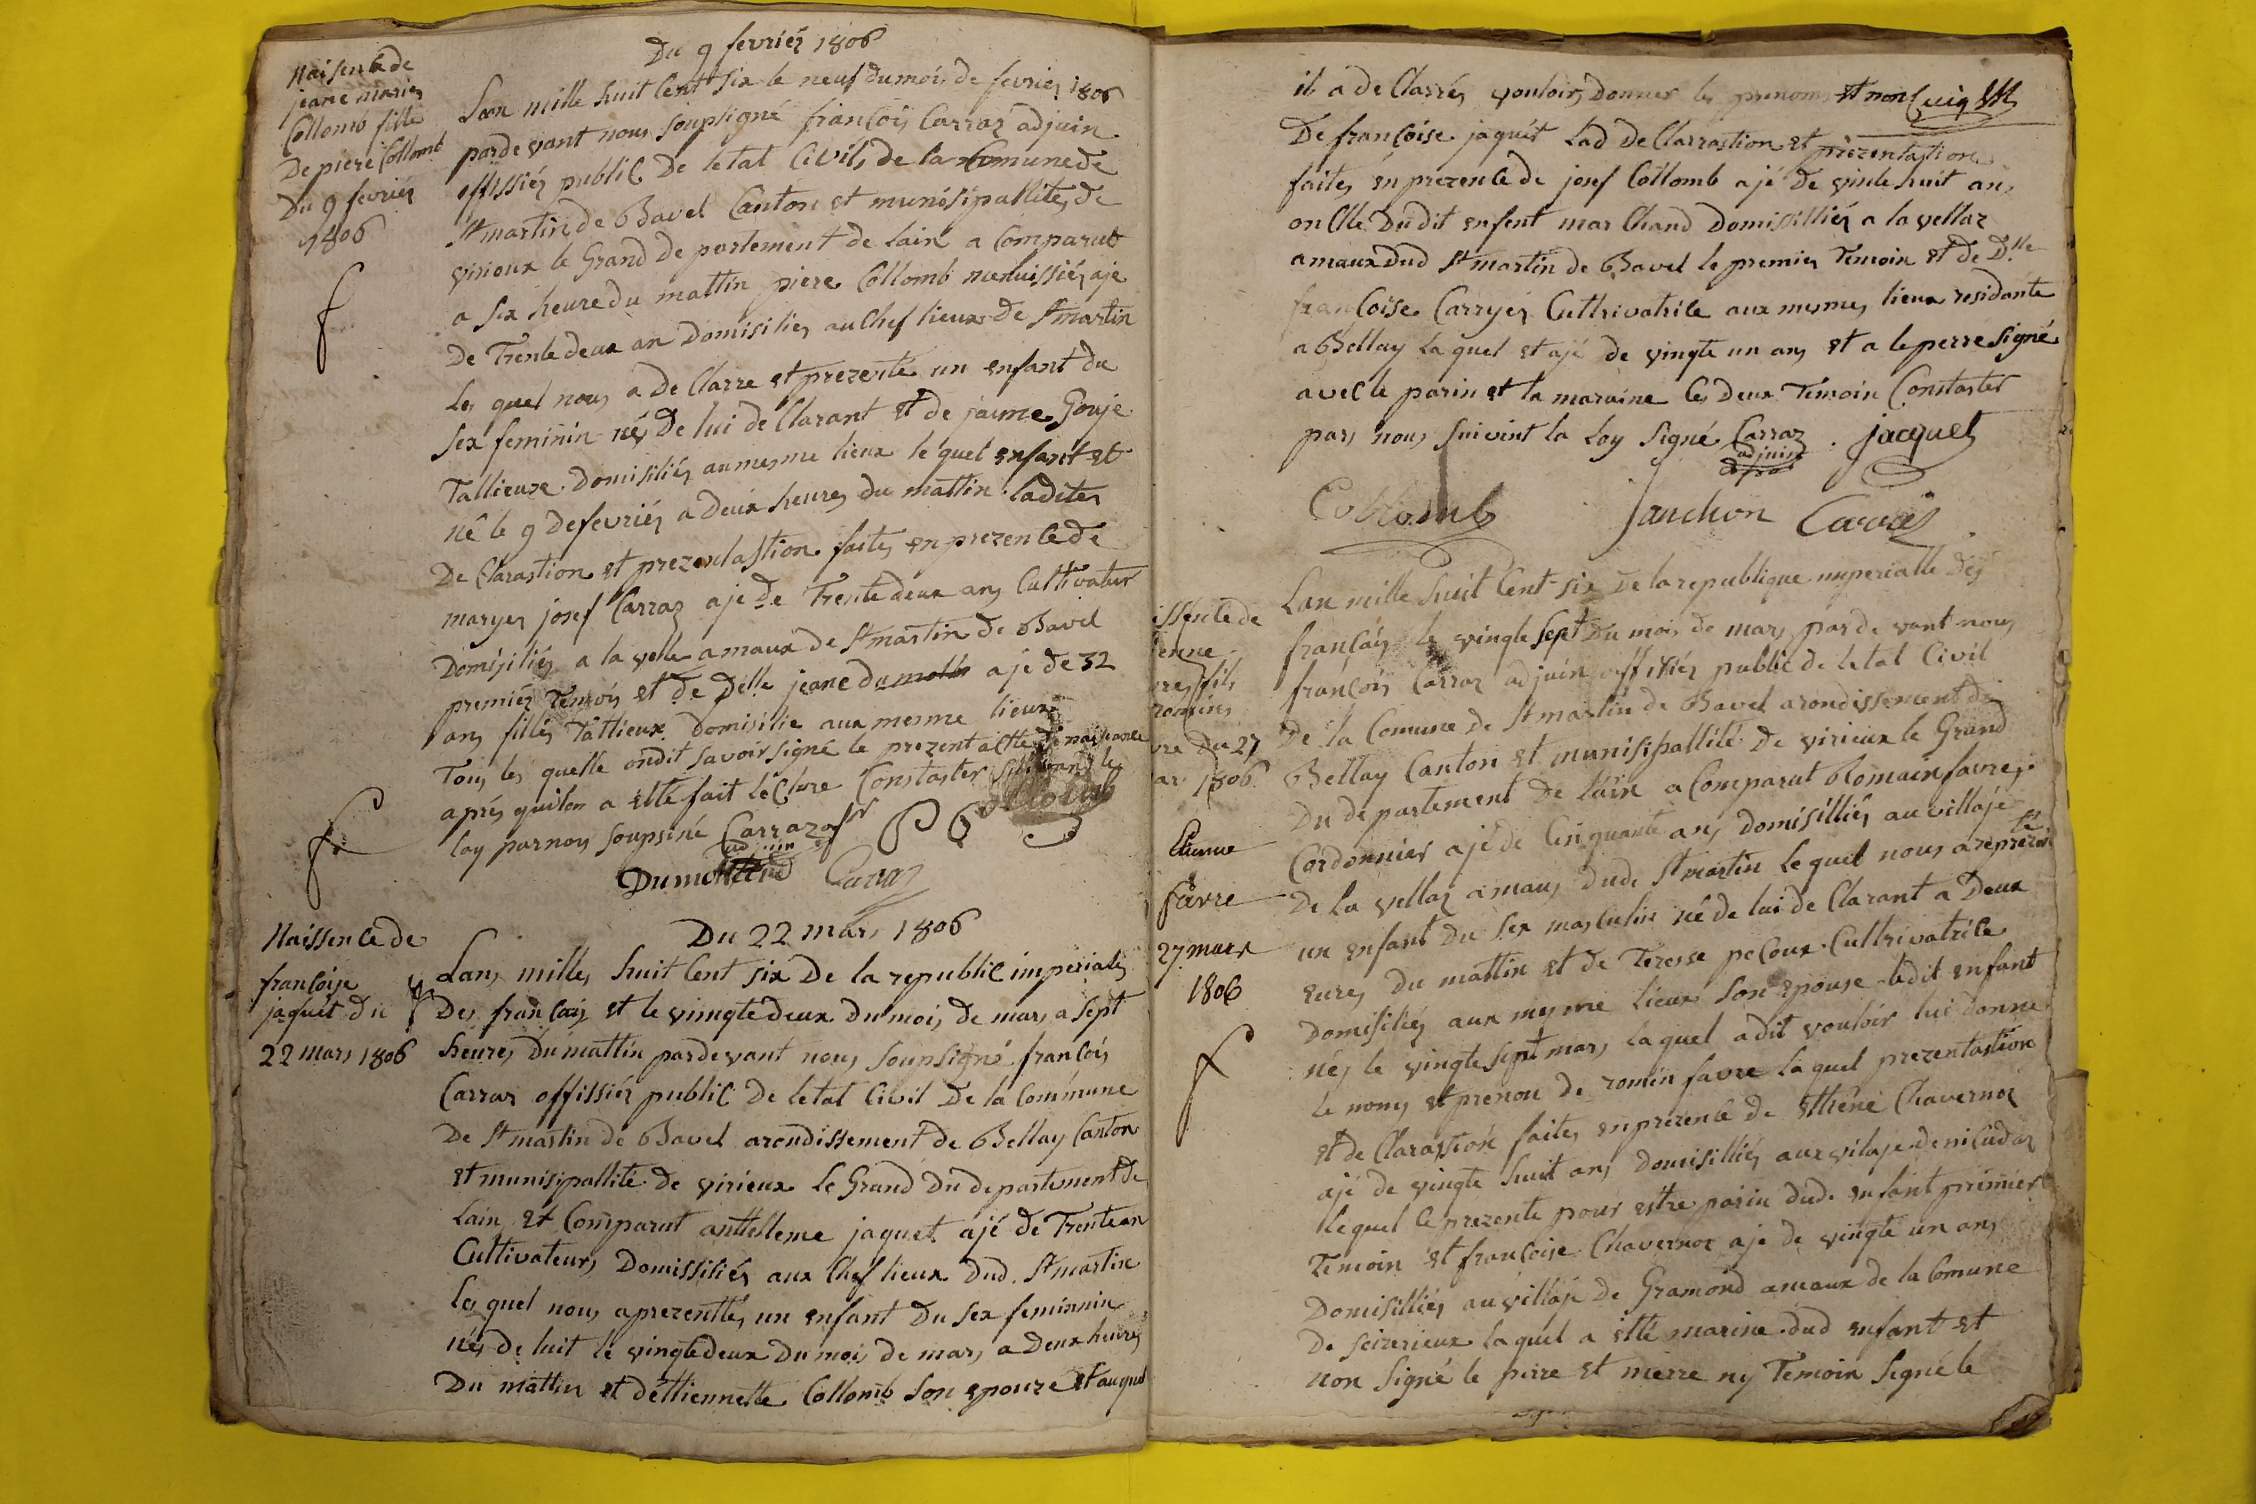 Du 9 fevrier 1806
Naisence de
jeane marie
Collomb fille
De piere Collomb
Du 9 fevrier
1806
Lan mille huit Cent six le neuf du mois de fevrier 1806
pardevant nous soupsigné françois Carraz adjuin
offissier public De letat Civils de la Comune de
St martin de Bavel Canton et munisipallite de
virieux le Grand departement de lain a Comparut
a six heure du mattin piere Collomb menuissier aje
De Trente deux an Domisilier au Chef lieux de St martin
les quel nous a de Clarre et prezente un enfant du
sex feminin né De lui de Clarant et de jaime Gouje
Tallieuse Domisiliés au mesme lieux le quel enfant et
né le 9 de fevriér a deux heures du mattin ladites
De Clarastion et prezentastion faites en prezence de
maryer josef Carraz aje de Trente deux ans Cultivateur
Domisiliés a la velle amaux de St martin de Bavel
premier Temois et de Delle jeane dumolb aje de 32
ans filles Tallieux Domisilie aux mesme lieux
Tous les quelle ondit savoir signé le prezent actte de naissance
aprés quilon a estté fait léCture Constaster suivant le
loy par nous soupsiné Carraz
adjuin
Collomb
Dumollard Carraz
Naissence de
françoise
jaquet du
22 mars 1806
Du 22 mars 1806
Lans milles huit Cent six De la republic imperiales
Des françois et le vingtedeux du mois de mars a sept
heures Du mattin pardevant nous soupsigné françois
Carraz offissiér public De letat Civil De la Commune
De St martin de Bavel arondissement de Bellay Canton
et munisipallité de virieux Le Grand Du departement de
Lain et Comparut antthleme jaquet ajé de Trente an
Cultivateurs Domissiliés aux Chef lieux Dud. St martin
les quel nous a prezenttés un enfant Du sex feminnin
nés de luit le vingtedeux Du mois de mars a Deux heures
Du mattin et dettiennette Collomb son epouze et au quel
il a de Clarrés vouloirs Donner les prenoms et non
De françoise jaquét Lad De Clarrastion et prezentastion
faites en prezence de josef Collomb ajé De vinte huit ans
onClle Du dit enfent marChand Domisilliés a la vellaz
amaux Dud St martin de Bavel le premier Temoin et de Dlle
françoise Carryer Culltrivatrice aux mesmes lieux residante
a Bellay la quel et ajé de vingte un ans et a le perre signé
avec le parin et la maraine les deux Temoin Constaster
pars nous suivint la Loy signé Carraz jacquet
adjuin
Collomb Janchon Carrier
issence de
ienne
vre fils
romins
vre Du 27
ar 1806
Etienne
favre
27 mars
1806
Lan mille huit Cent six De la republique imperialle Des
françois le vingte sept Du mois de mars pardevant nous
françois Carraz adjuin offisiér public de letat Civil
De la Comune de St martin de Bavel arondissement de
Bellay Canton et munisipallité De virieux le Grand
Du departement De lain a Comparut Romain favre
Cordonnier ajé de Cinquante ans Domisilliés au villaje
De La vellaz amaus Dud. St martin Le quel nous a reprezenté
un enfant Du sex masculin né de lui de Clarant a Deux
eures Du mattin et de Teresse peCoux Culltrivatrice
Domisiliés aux mesme Lieux son epouse ledit enfant
nés le vingte sept mars laquel a dit vouloir lui donne
le noms et prenon de romin favre laquel prezentastion
et de Clarastion faites en prezence de Ethiéne Chavernoz
ajé de vingte huit ans Domisilliés aux vilaje de niCudaz
lequel Ce prezente pour estre parin Dud. enfant primier
Temoin et françoise Chavernoz aje de vingte un ans
Domisilliés au villaje de Gramond amaux de la Comune
De seizerieux laquel a étté marine dud enfant et
non signé le perre et merre ny Temoin signé le